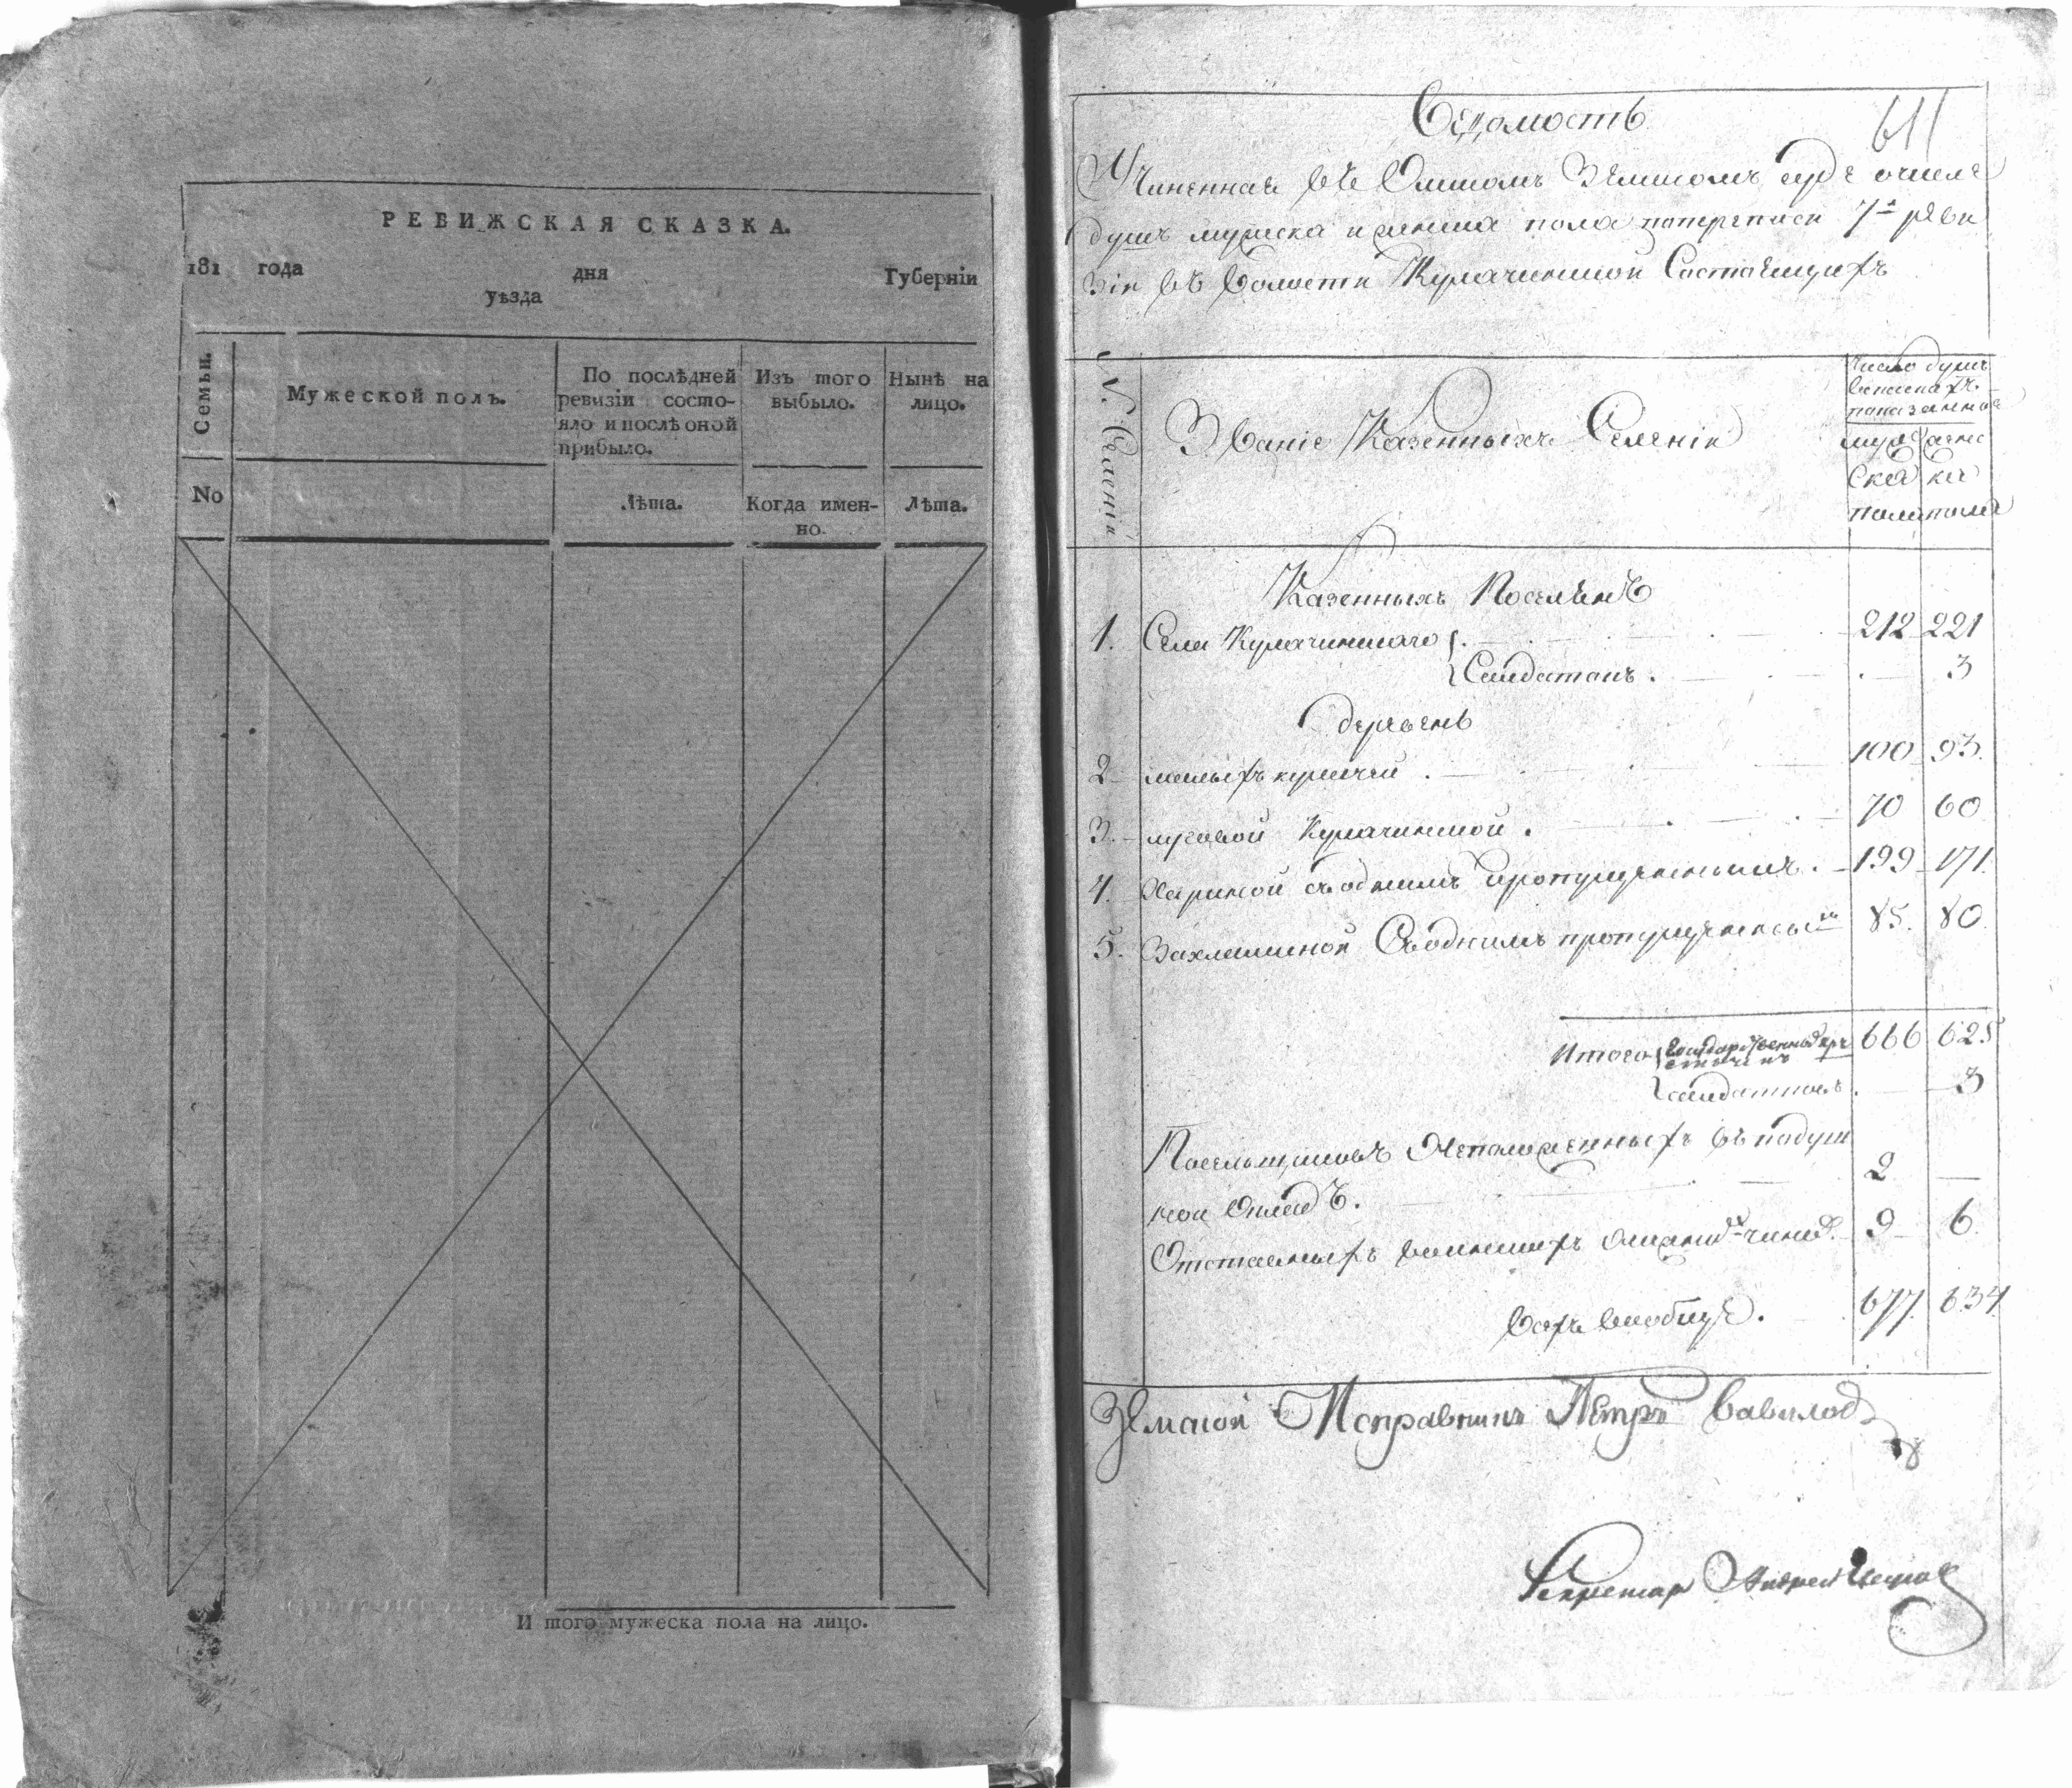 РЕВИЖСКАЯ СКАЗКА.
181 года дня Губерніи
уѣзда
Семьи.
Мужеской полъ.
По послѣдней
ревизіи состо-
яло и послѣ оной
прибыло.
Изъ того
выбыло.
Нынѣ на
лицо.
No
Лѣта.
Когда имен-
но.
Лѣта.
И того мужеска пола на лицо.
611
Ведомость
Учиненная въ Омскомъ Земскомъ суде очисле
душъ мужеска и женска пола поперепеси 7й реви
зіи въ волости Кулачинской Состоящихъ
N. Селеніи
Званіе Казенныхъ Селеніи
Число душъ
показанное
муже
ска
пола
женс
ка
пола
Казенныхъ Поселянъ
1. Села Кулачинскаго 212 221
Солдатокъ. 3
деревень
2 малыхъ кулачей 100 93.
3. луговой Кулачинской. 70 60
4. Хариной съоднимъ пропущеннымъ. 199 171.
5. Захламиной Съоднимъ пропущеннымъ 85. 80.
Итого Государственныхъ кре
стьянъ 666 625
солдатокъ. 3
Посельщиковъ Неположенныхъ въ подуш
ной Окладъ. 2 —
Отставныхъ воинскихъ чинов. 9 6.
Всехъ вообще. 677. 634
Земской Исправникъ Петръ Вавилов
Секретарь Андрей